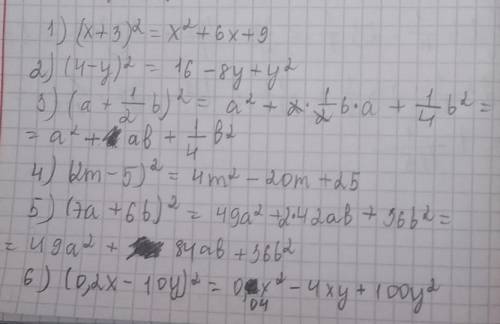 1) (x+3)² = x² + 6x + 9
2) (4-y)² = 16 - 8y + y²
3) (a + 1/2 b)² = a² + 2·1/2 b·a + 1/4 b² =
= a² + ab + 1/4 b²
4) (2m - 5)² = 4m² - 20m + 25
5) (7a + 6b)² = 49a² + 2·42ab + 36b² =
= 49a² + 84ab + 36b²
6) (0,2x - 10y)² = 0,04x² - 4xy + 100y²